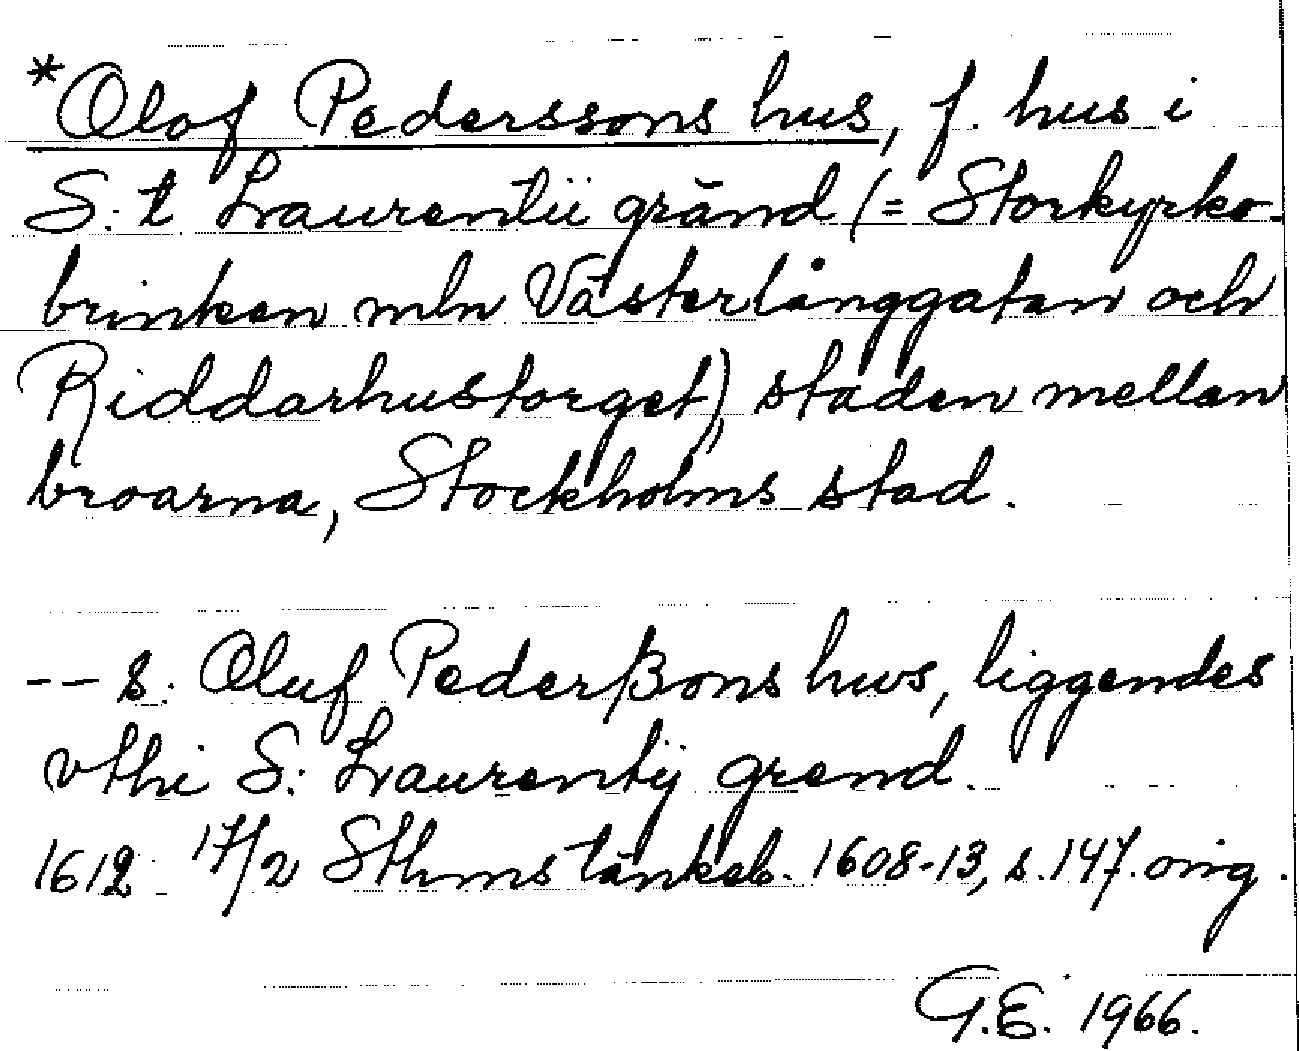 *Olof Pederssons hus, f. hus i
S:t Laurentii gränd (= Storkyrko-
brinken mln Västerlånggatan och
Riddarhustorget), staden mellan
broarna, Stockholms stad.
-- s. Oluf Pederßons hws, liggendes
vthi S: Laurentij grend.
1612 17/2 Sthms tänkeb. 1608-13, s. 147. orig.
G.E. 1966.